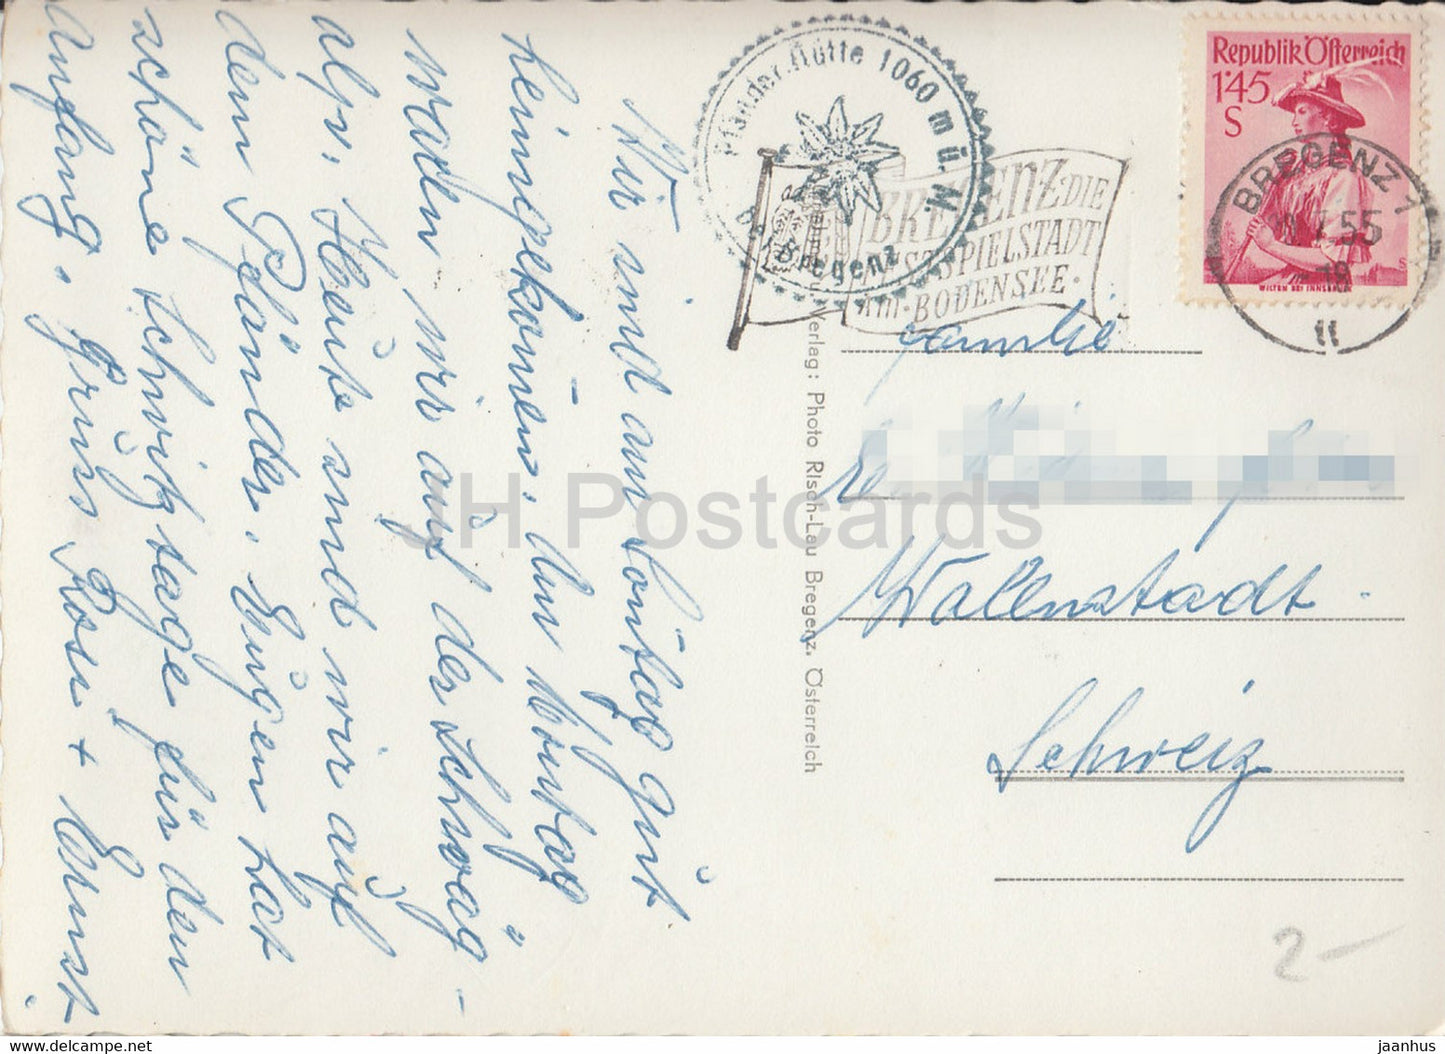 Wir sind am Sontag gut
heimgekomen. Am Montag
waren wir auf der Schwäg-
alp. Heute sind wir auf
dem Pfänder. Eugen hat
schöne Schwitztage für den
Anfang. Gruss Rosu + Ernst.
Pfänder.Hütte 1060 m ü. M.
Bregenz
BREGENZ·DIE
FESTSPIELSTADT
AM·BODENSEE·
Republik Österreich
1·45
S
WILTEN BEI INNSBRUCK
BREGENZ 1
7.55
18
tt
Verlag: Photo Risch-Lau Bregenz, Österreich
Familie
Wallenstadt.
Schweiz
2-
JH Postcards
www.delcampe.net
jaanhus